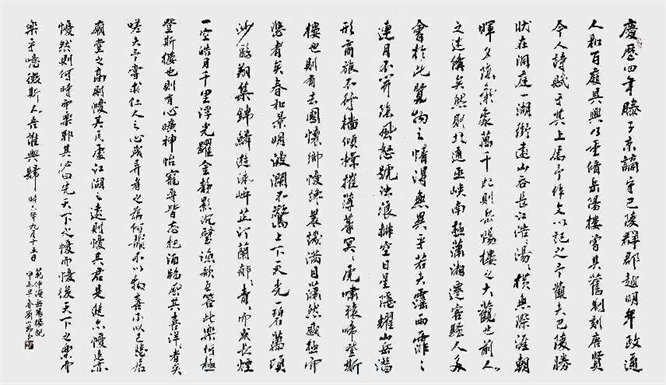 慶歷四年滕子京謫守巴陵群郡越明年政通
人和百廢具興乃重脩岳陽樓嘗其舊制刻唐賢
今人詩賦于其上屬予作文以記之予觀夫巴陵勝
狀在洞庭一湖銜遠山吞長江浩〻湯〻橫無際涯朝
暉夕陰氣象萬千此則岳陽樓之大觀也前人
之述備矣然則北通巫峽南極瀟湘遷客騷人多
會於此覽物之情得無異乎若夫霪雨霏〻
連月不開陰風怒號濁浪排空日星隱耀山岳潛
形商旅不行檣傾楫摧薄暮冥〻虎嘯猿啼登斯
樓也則有去國懷鄉憂讒畏譏滿目蕭然感極而
悲者矣春和景明波瀾不驚上下天光一碧萬頃
沙鷗翔集錦鱗遊泳岸芷汀蘭郁〻青〻而或長煙
一空皓月千里浮光耀金靜影沉璧漁歌互答此樂何極
登斯樓也則有心曠神怡寵辱皆忘把酒臨風其喜洋洋者矣
嗟夫予嘗求仁人之心或異二者之為何哉不以物喜不以己悲居
廟堂之高則憂其民處江湖之遠則憂其君是進亦憂退亦
憂然則何時而樂耶其必曰先天下之憂而憂後天下之樂而
樂乎噫微斯人吾誰與歸 時六年九月十五日
范仲淹岳陽樓記